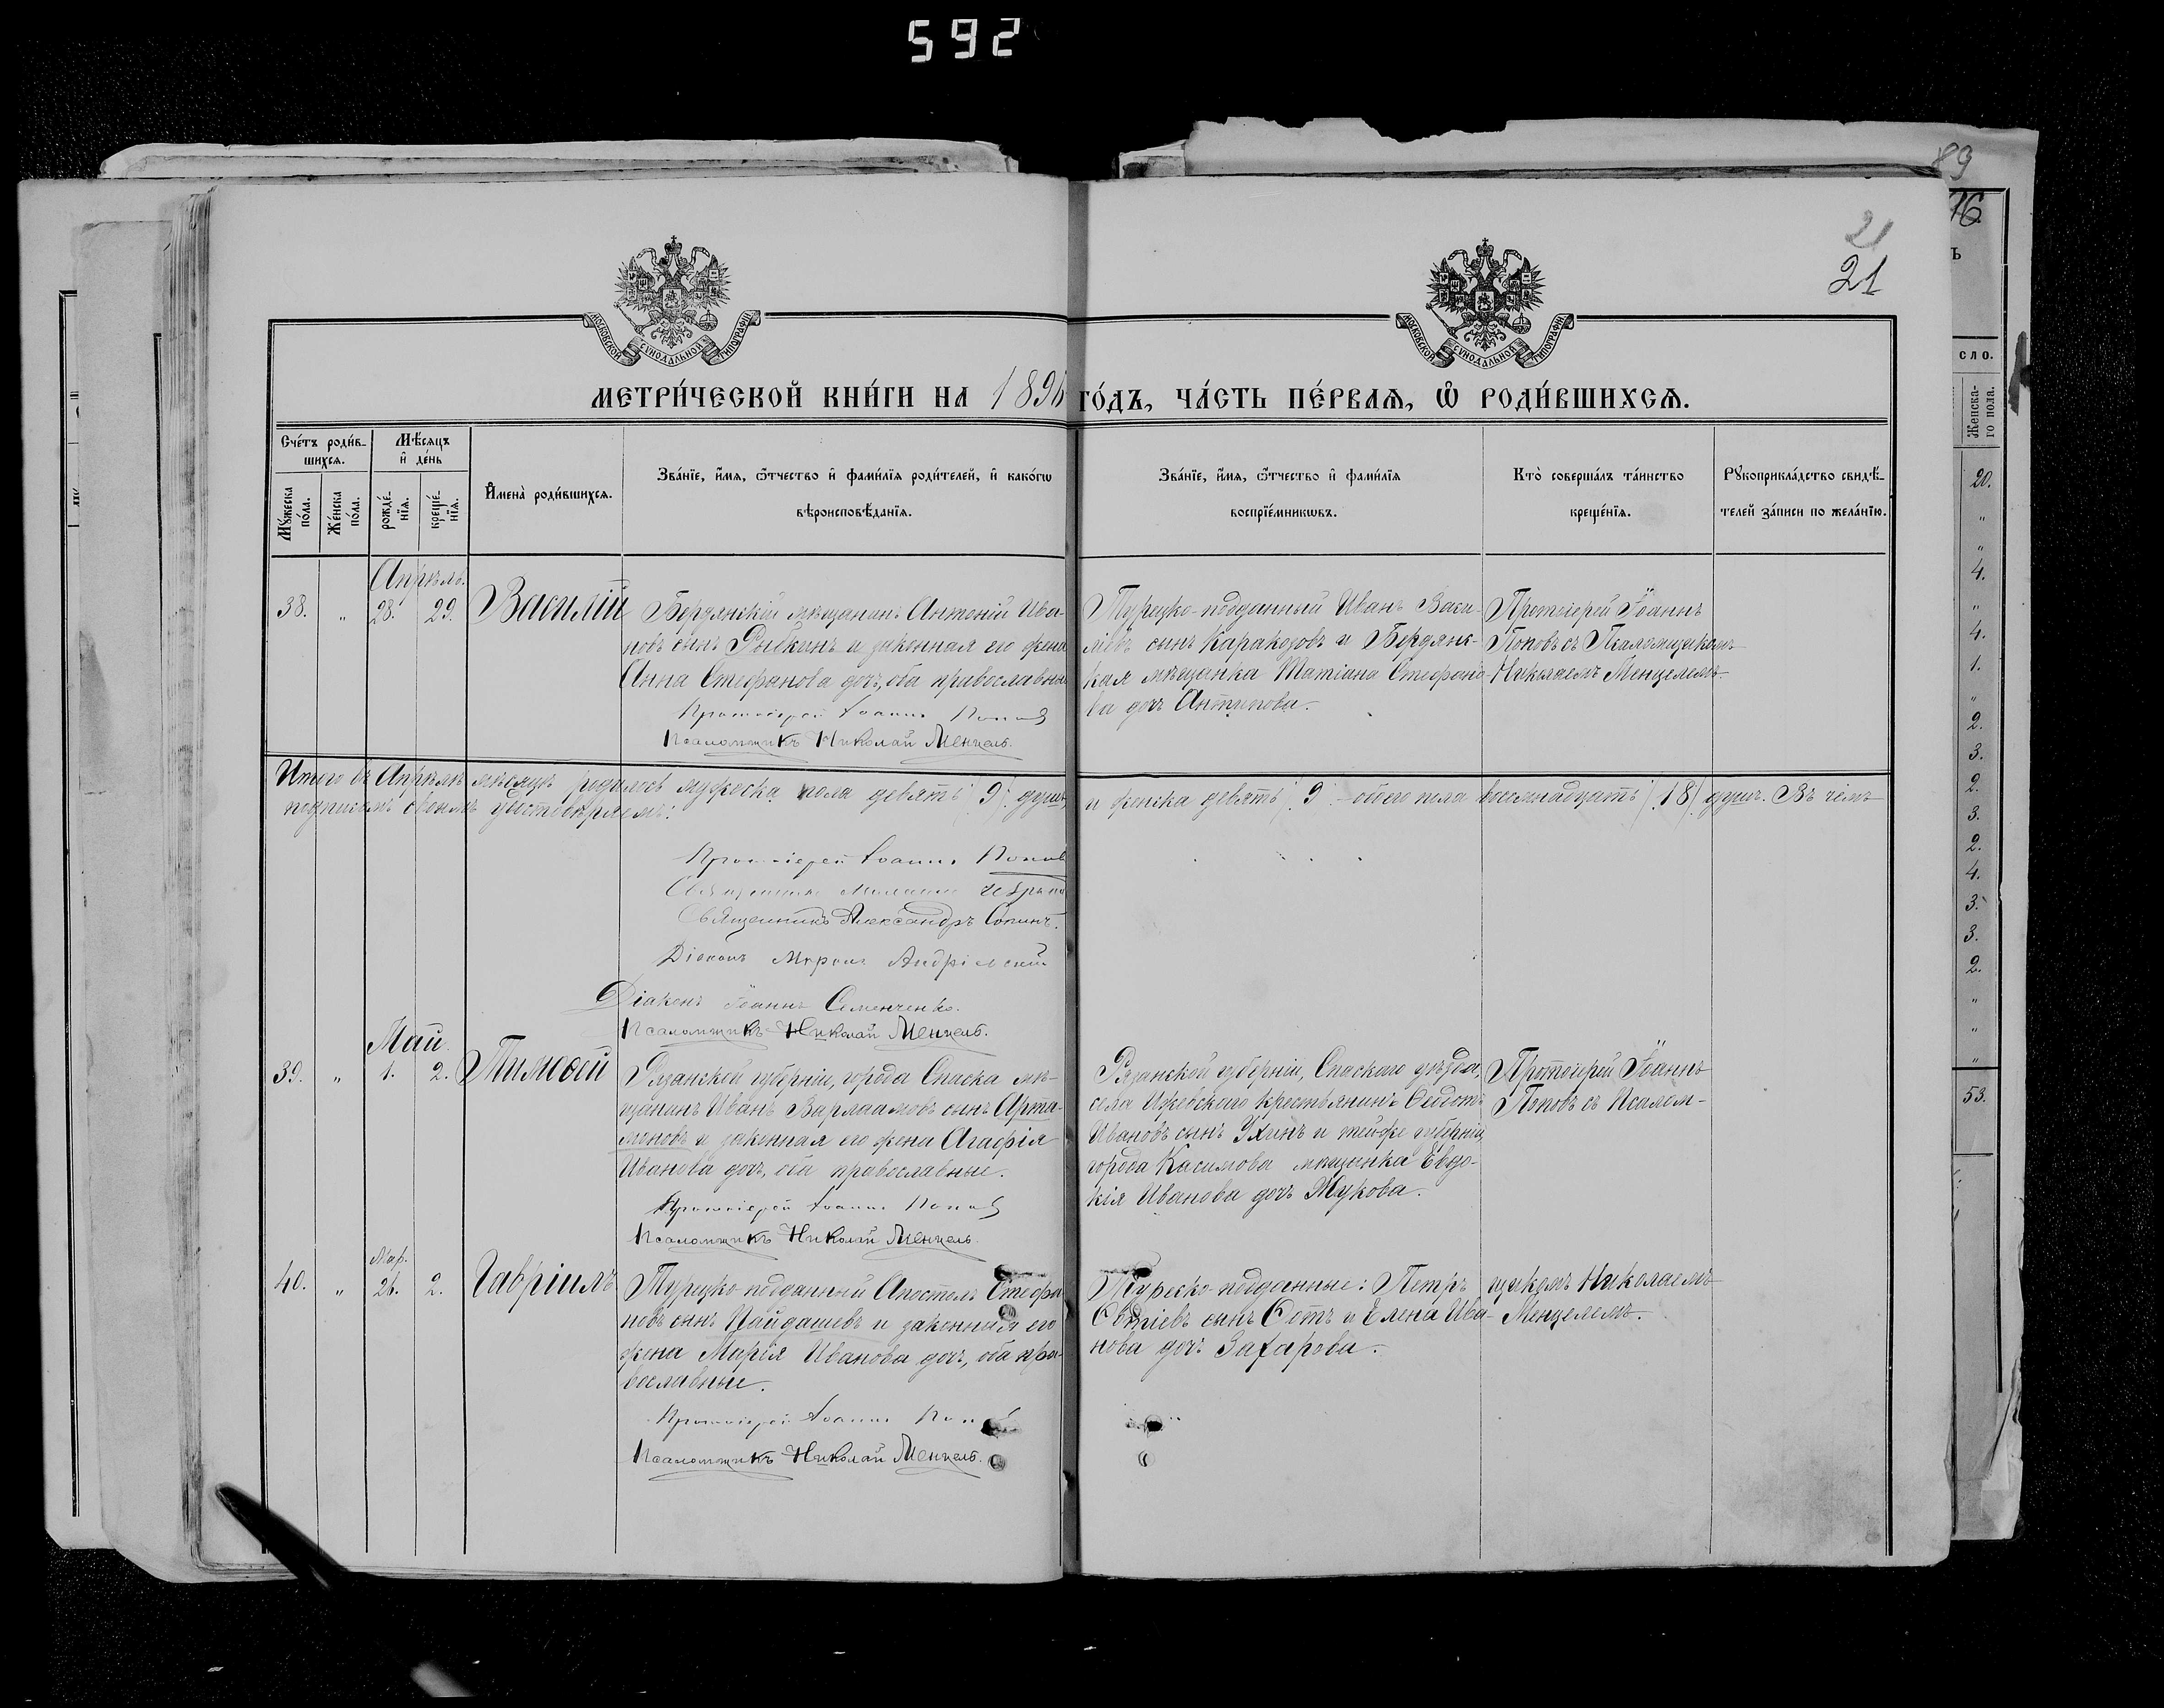 592
89
16
21
21
МОСКОВСКОЙ СУНОДАЛЬНОЙ ТИПОГРАФІИ
МОСКОВСКОЙ СУНОДАЛЬНОЙ ТИПОГРАФІИ
МЕТРИ́ЧЕСКОЙ КНИ́ГИ НА 1896 ГО́ДЪ, ЧА́СТЬ ПЕ́РВАѦ, Ѿ РОДИ́ВШИХСѦ.
Сче́тъ роди́в-
шихсѧ.
Мѣ́сѧцъ
и҆ де́нь
Мꙋ́жеска
по́ла.
Же́нска
по́ла.
рожде́-
нїѧ.
креще́-
нїѧ.
И҆мена̀ роди́вшихсѧ.
Зва́нїе, и҆́мѧ, ѻ҆́тчество и҆ фами́лїѧ роди́телей, и҆ како́гѡ
вѣроисповѣ́данїѧ.
Зва́нїе, и҆́мѧ, ѻ҆́тчество и҆ фами́лїѧ
воспрїе́мникѡвъ.
Кто̀ соверша́лъ та́инство
креще́нїѧ.
Рꙋкоприкла́дство свидѣ́-
телей за́писи по жела́нїю.
Апрѣль.
38. " 28. 29. Василій
Бердянскій мѣщанинъ Антоній Ива-
новъ сынъ Рыбкинъ и законная его жена
Анна Стефанова дочь, оба православные
Протоіерей Іоаннъ Поповъ
Псаломщикъ Николай Менцель.
Турецко-подданный Иванъ Васи-
ліевъ сынъ Каракозовъ и Бердянс-
кая мѣщанка Татіана Стефано-
ва дочь Антипова.
Протоіерей Іоаннъ
Поповъ съ Псаломщикомъ
Николаемъ Менцелемъ
Итого въ Апрѣлѣ мѣсяцѣ родилось мужеска пола девять /9/ душъ и женска девять /9/ - обоего пола восемнадцать /18/ душъ. Въ чемъ
подписомъ своимъ удостовѣряемъ:
Протоіерей Іоаннъ Поповъ
Священникъ
Священникъ Александръ Сопинъ.
Діаконъ Миронъ Андріевскій
Діаконъ Іоаннъ Семенченко.
Псаломщикъ Николай Менцель.
Май.
39. " 1. 2. Тимоѳей
Рязанской губерніи, города Спаска мѣ-
щанинъ Иванъ Варлаамовъ сынъ Арта-
моновъ и законная его жена Агафія
Иванова дочь, оба православные.
Протоіерей Іоаннъ Поповъ
Псаломщикъ Николай Менцель.
Рязанской губерніи, Спаскаго уѣзда,
села Ижевскаго крестьянинъ Ѳедотъ
Ивановъ сынъ и тойже губерніи,
города Касимова мѣщанка Евдо-
кія Иванова дочь Жукова.
Протоіерей Іоаннъ
Поповъ съ Псалом-
Мар.
40. " 26. 2. Гавріилъ
Турецко-подданный Апостолъ Стефа-
новъ сынъ Пайдашевъ и законная его
жена Марія Иванова дочь, оба пра-
вославные.
Протоіерей Іоаннъ Поповъ
Псаломщикъ Николай Менцель.
Турецко-подданные: Петръ
сынъ и Елена Ива-
нова дочь Захарова.
щикомъ Николаемъ
Менцелемъ.
ъ
СЛО.
Женска-
го пола.
20.
"
"
4.
"
4.
1.
"
2.
3.
2.
3.
2.
4.
3.
3.
2.
"
"
"
53.